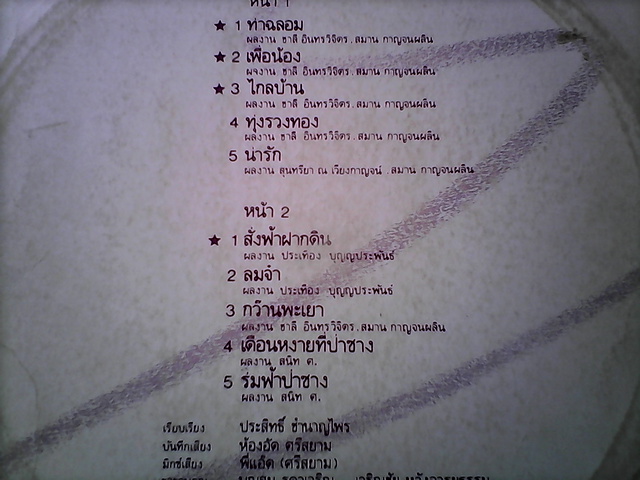 หน้า 1
★ 1 ท่าฉลอม
ผลงาน ชาลี อินทรวิจิตร . สมาน กาญจนผลิน
★ 2 เพื่อน้อง
ผลงาน ชาลี อินทรวิจิตร . สมาน กาญจนผลิน
★ 3 ไกลบ้าน
ผลงาน ชาลี อินทรวิจิตร . สมาน กาญจนผลิน
4 ทุ่งรวงทอง
ผลงาน ชาลี อินทรวิจิตร . สมาน กาญจนผลิน
5 น่ารัก
ผลงาน สุนทรียา ณ เวียงกาญจน์ . สมาน กาญจนผลิน
หน้า 2
★ 1 สั่งฟ้าฝากดิน
ผลงาน ประเทือง บุญญประพันธ์
2 ลมจ๋า
ผลงาน ประเทือง บุญญประพันธ์
3 กว๊านพะเยา
ผลงาน ชาลี อินทรวิจิตร . สมาน กาญจนผลิน
4 เดือนหงายที่ป่าซาง
ผลงาน สนิท ศ.
5 ร่มฟ้าป่าซาง
ผลงาน สนิท ศ.
เรียบเรียง ประสิทธิ์ ชำนาญไพร
บันทึกเสียง ห้องอัด ศรีสยาม
มิกซ์เสียง พี่แอ๊ด (ศรีสยาม)